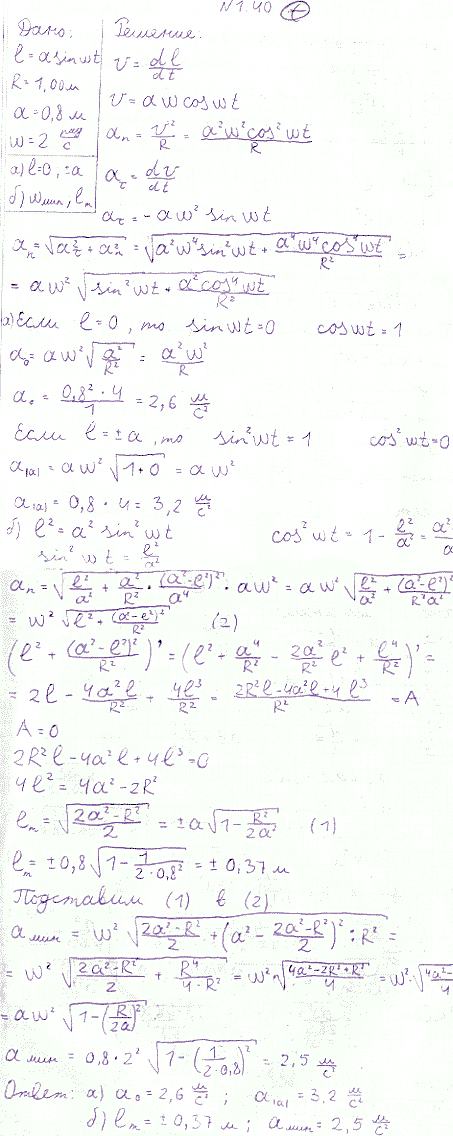 N1.40 (+)
Дано: Решение:
l = a sin wt
R = 1,00 м
a = 0,8 м
w = 2 рад/с
а) l=0, ±a
б) wмин, lm
v = dl/dt
v = a w cos wt
an = v²/R = a²w²cos²wt/R
aτ = dv/dt
aτ = -aw² sin wt
an = √(aτ² + an²) = √(a²w⁴sin²wt + a⁴w⁴cos⁴wt/R²) =
= aw² √(sin²wt + a²cos⁴wt/R²)
а) Если l=0, то sin wt=0 cos wt = 1
a₀ = aw² √(a²/R²) = a²w²/R
a₀ = 0,8²·4/1 = 2,6 м/с²
Если l = ±a, то sin²wt = 1 cos²wt=0
a|a| = aw² √(1+0) = aw²
a|a| = 0,8 · 4 = 3,2 м/с²
б) l² = a² sin²wt cos²wt = 1 - l²/a² = a²
sin²wt = l²/a²
an = √(l²/a² + a²/R² · (a²-l²)²/a⁴) · aw² = aw² √(l²/a² + (a²-l²)²/R²a²)
= w² √(l² + (a²-l²)²/R²) (2)
(l² + (a²-l²)²/R²)' = (l² + a⁴/R² - 2a²/R² l² + l⁴/R²)' =
= 2l - 4a²l/R² + 4l³/R² = 2R²l-4a²l+4l³/R² = A
A = 0
2R²l - 4a²l + 4l³=0
4l² = 4a² - 2R²
lm = √(2a²-R²/2) = ±a√(1-R²/2a²) (1)
lm = ±0,8 √(1-1/2·0,8²) = ±0,37 м
Подставим (1) в (2)
aмин = w² √(2a²-R²/2 + (a² - 2a²-R²/2)² : R²) =
= w² √(2a²-R²/2 + R⁴/4·R²) = w² √(4a²-2R²+R²/4) = w² √(4a²-
= aw² √(1-(R/2a)²)
aмин = 0,8·2² √(1-(1/2·0,8)²) = 2,5 м/с²
Ответ: а) a₀=2,6 м/с² ; a|a| = 3,2 м/с²
б) lm = ±0,37 м ; aмин = 2,5 м/с²